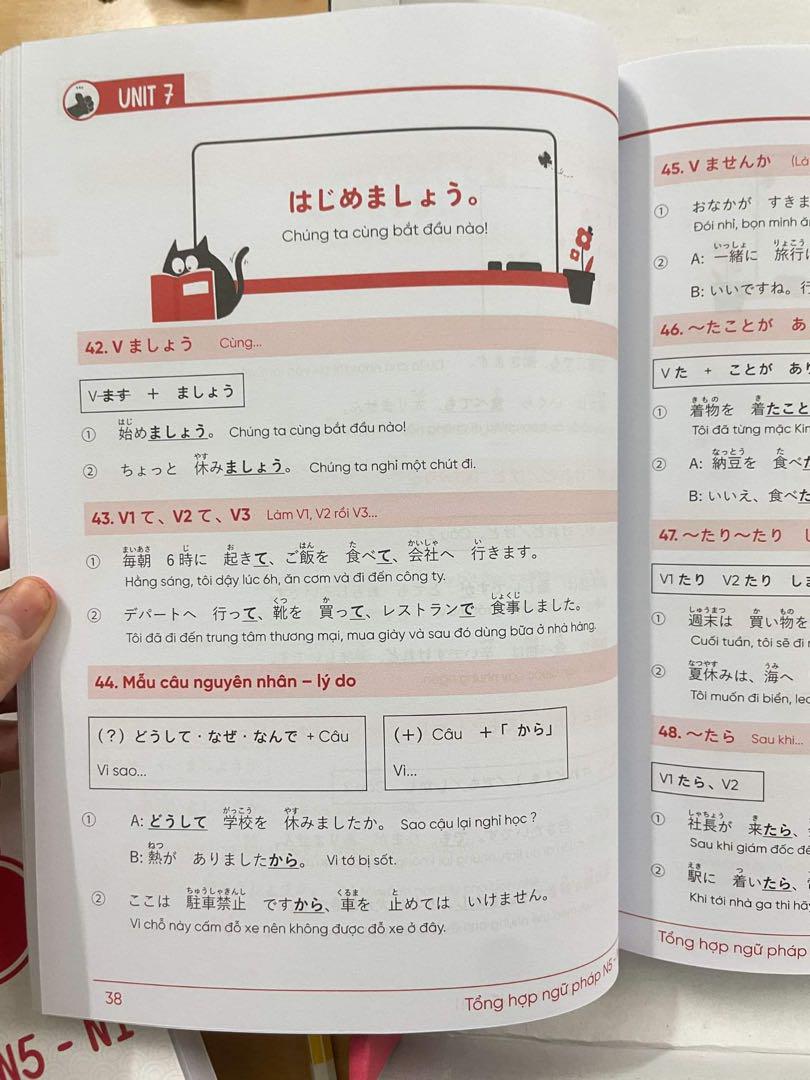 UNIT 7
はじめましょう。
Chúng ta cùng bắt đầu nào!
42. V ましょう Cùng...
V ます + ましょう
① 始めましょう。 Chúng ta cùng bắt đầu nào!
② ちょっと 休みましょう。 Chúng ta nghỉ một chút đi.
43. V1 て、V2 て、V3 Làm V1, V2 rồi V3...
① 毎朝 6時に 起きて、ご飯を 食べて、会社へ 行きます。
Hằng sáng, tôi dậy lúc 6h, ăn cơm và đi đến công ty.
② デパートへ 行って、靴を 買って、レストランで 食事しました。
Tôi đã đi đến trung tâm thương mại, mua giày và sau đó dùng bữa ở nhà hàng.
44. Mẫu câu nguyên nhân – lý do
(?) どうして・なぜ・なんで + Câu
Vì sao...
(+) Câu +「 から」
Vì...
① A: どうして 学校を 休みましたか。 Sao cậu lại nghỉ học ?
B: 熱が ありましたから。 Vì tớ bị sốt.
② ここは 駐車禁止 ですから、車を 止めては いけません。
Vì chỗ này cấm đỗ xe nên không được đỗ xe ở đây.
38
Tổng hợp ngữ pháp N5 -
45. V ませんか (Là
① おなかが すきま
Đói nhỉ, bọn mình ă
② A: 一緒に 旅行に
B: いいですね。行
46. ～たことが あ
V た + ことが あり
① 着物を 着たこと
Tôi đã từng mặc Kin
② A: 納豆を 食べた
B: いいえ、食べた
47. ～たり～たり し
V1 たり V2 たり しま
① 週末は 買い物を
Cuối tuần, tôi sẽ đi
② 夏休みは、海へ
Tôi muốn đi biển, leo
48. ～たら Sau khi...
V1 たら、V2
① 社長が 来たら、
Sau khi giám đốc đế
② 駅に 着いたら、
Khi tới nhà ga thì hã
Tổng hợp ngữ pháp
N5 - N1